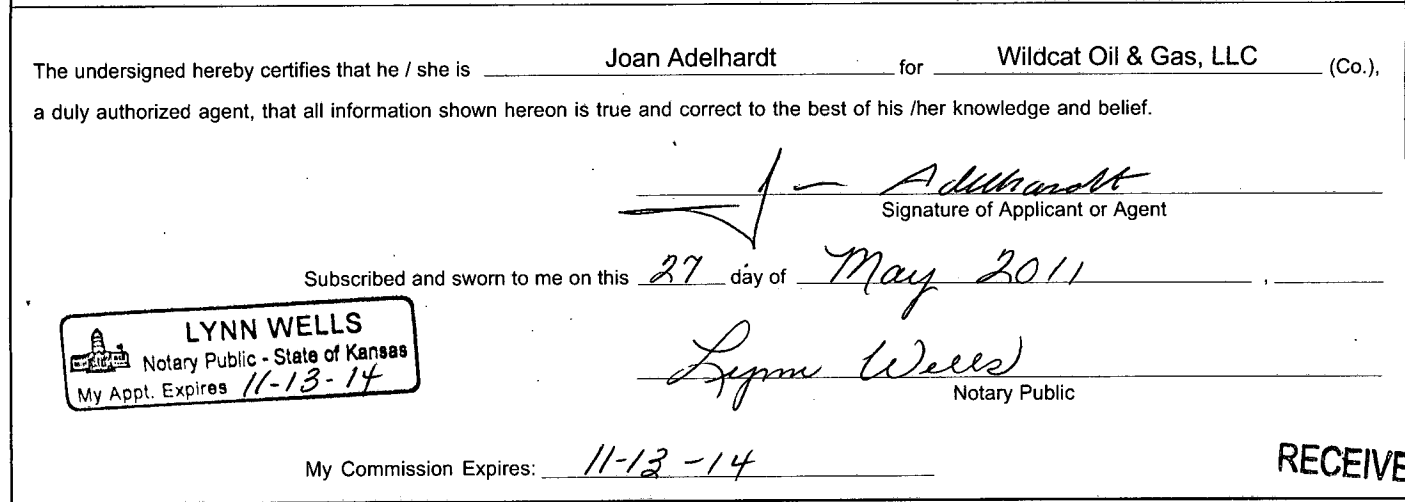 The undersigned hereby certifies that he / she is Joan Adelhardt for Wildcat Oil & Gas, LLC (Co.),
a duly authorized agent, that all information shown hereon is true and correct to the best of his /her knowledge and belief.
J Adelhardt
Signature of Applicant or Agent
Subscribed and sworn to me on this 27 day of May 2011 ,
LYNN WELLS
Notary Public - State of Kansas
My Appt. Expires 11-13-14
Lynn Wells
Notary Public
My Commission Expires: 11-13-14
RECEIVE